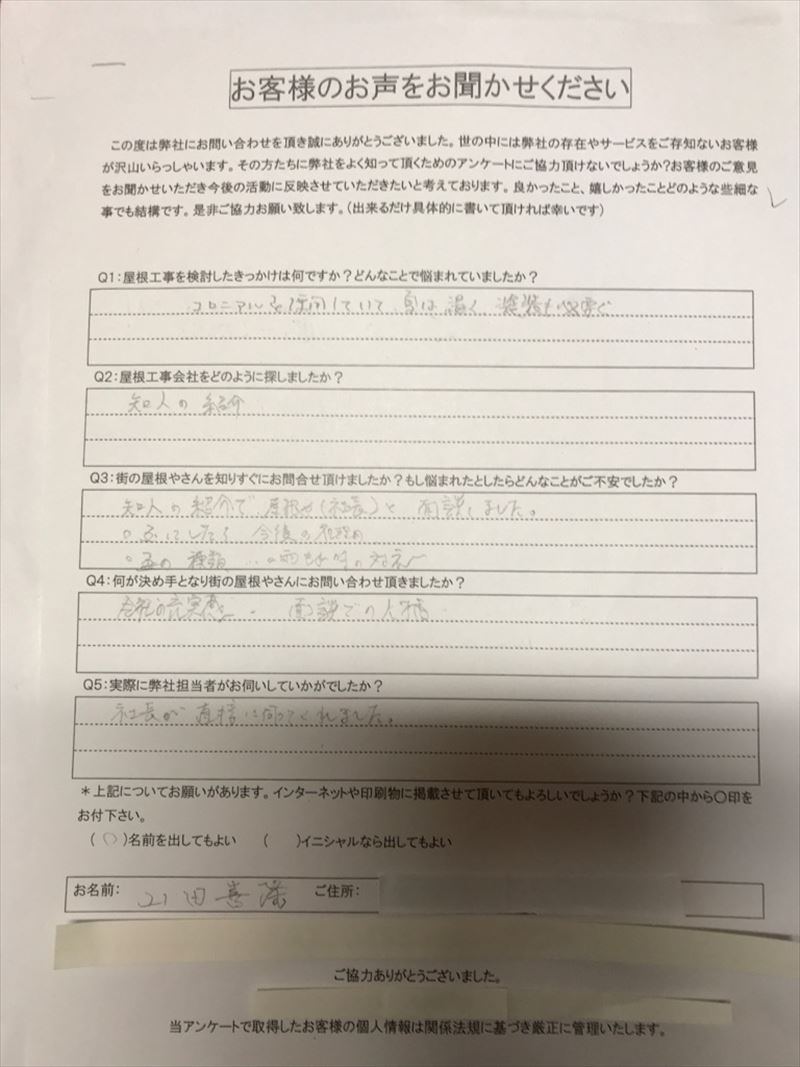 お客様のお声をお聞かせください
この度は弊社にお問い合わせを頂き誠にありがとうございました。世の中には弊社の存在やサービスをご存知ないお客様
が沢山いらっしゃいます。その方たちに弊社をよく知って頂くためのアンケートにご協力頂けないでしょうか?お客様のご意見
をお聞かせいただき今後の活動に反映させていただきたいと考えております。良かったこと、嬉しかったことどのような些細な
事でも結構です。是非ご協力お願い致します。(出来るだけ具体的に書いて頂ければ幸いです)
Q1:屋根工事を検討したきっかけは何ですか?どんなことで悩まれていましたか?
コロニアルを使用していて、夏は 塗装も必要で
Q2:屋根工事会社をどのように探しましたか?
知人の紹介
Q3:街の屋根やさんを知りすぐにお問合せ頂けましたか?もし悩まれたとしたらどんなことがご不安でしたか?
知人の紹介で 屋根や(社長)と 面談しました。
今後の
の種類
Q4:何が決め手となり街の屋根やさんにお問い合わせ頂きましたか?
会社の充実 面談での人格
Q5:実際に弊社担当者がお伺いしていかがでしたか?
社長が 直接に伺ってくれました。
*上記についてお願いがあります。インターネットや印刷物に掲載させて頂いてもよろしいでしょうか?下記の中から〇印を
お付下さい。
(〇)名前を出してもよい ( )イニシャルなら出してもよい
お名前: 山田喜隆 ご住所:
ご協力ありがとうございました。
当アンケートで取得したお客様の個人情報は関係法規に基づき厳正に管理いたします。